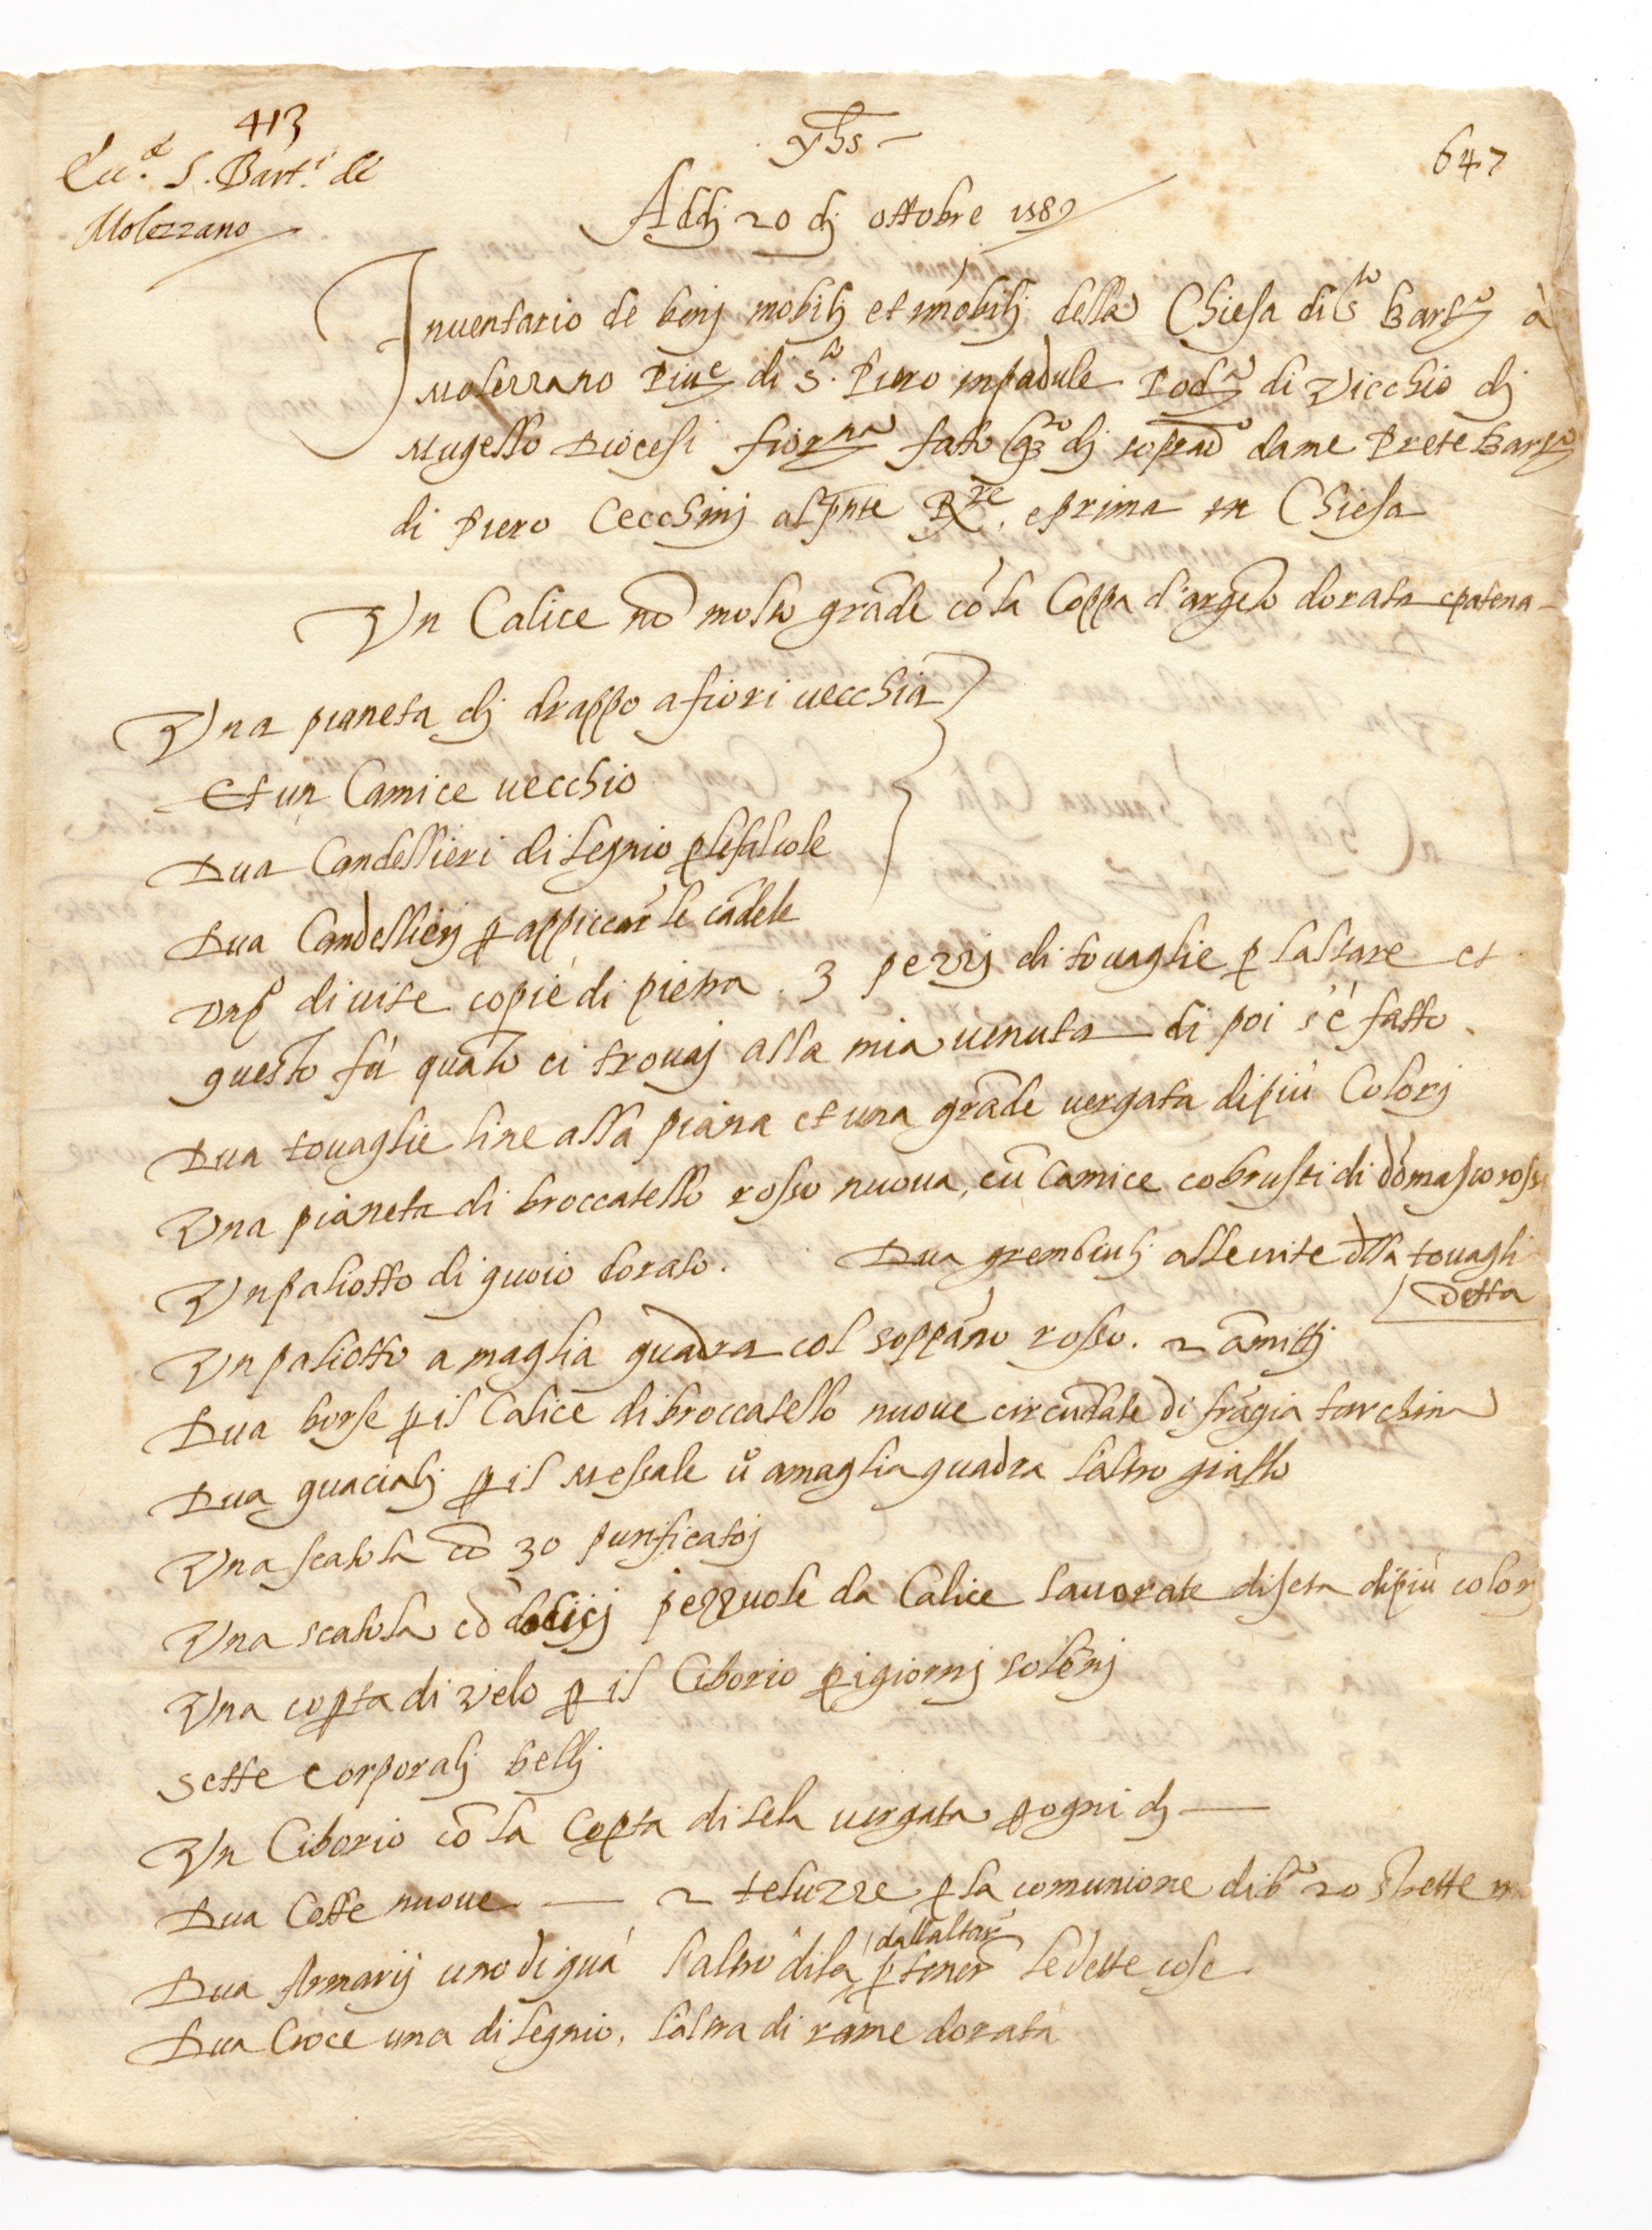 413
Eccl.ᵃ S. Bart.ⁱ de
Molezzano
yhs
647
Addj 20 dj ottobre 1589
Inuentario de benj mobilj et imobilj della Chiesa di Sᵗᵒ Bartᵒ à
Molezzano Piuᵉ di Sᵗᵒ Piero inpadule Podᵃ di Vicchio dj
Mugello Diocesi fiorⁿᵃ fatto qᵒ dj sopradᵒ da me Prete Bartᵒ
di Piero Cecchinj al pnte Rʳᵉ. e prima in Chiesa
Vn Calice nō molto grāde cō la Coppa d'argēto dorata e patena
Vna pianeta dj drappo a fiori uecchia
Et un Camice uecchio
Dua Candellieri di legnio p le falcole
Dua Candellierj p appiccar le cādele
di uite copie di pietra. 3 pezzj di touaglie p l'altare et
questo fú quāto ci trouaj alla mia uenuta di poi s'é fatto
Dua touaglie line alla piana et una grāde uergata di piú Colorj
Vna pianeta di broccatello rosso nuoua, cū Camice co brusti di domasco rosso
Vn paliotto di quoio dorato. Dua grembiulj alle uite dlla touagli
Detta
Vn paliotto a maglia quadra col soppāno rosso. 2 āmittj
Dua borse p il Calice di broccatello nuoue circūdate di frāgia turchina
Dua guacialj p il Messale ū a maglia quadra l'altro giallo
Vna scatola cō 30 purificatoj
Vna scatola cō dodicj pezzuole da Calice lauorate di seta di piú color
Vna copta di velo p il Ciborio p i giornj solēnj
Sette corporalj bellj
Vn Ciborio cō la Copta di tela uergata p ogni dj
Dua Cotte nuoue 2 teluzze p la comunione di bᵃ 20 strette
dall altar
Dua Armarij uno di quá l'altro di lá p tener le dette cose
Dua Croce una di legnio, l'altra di rame dorata